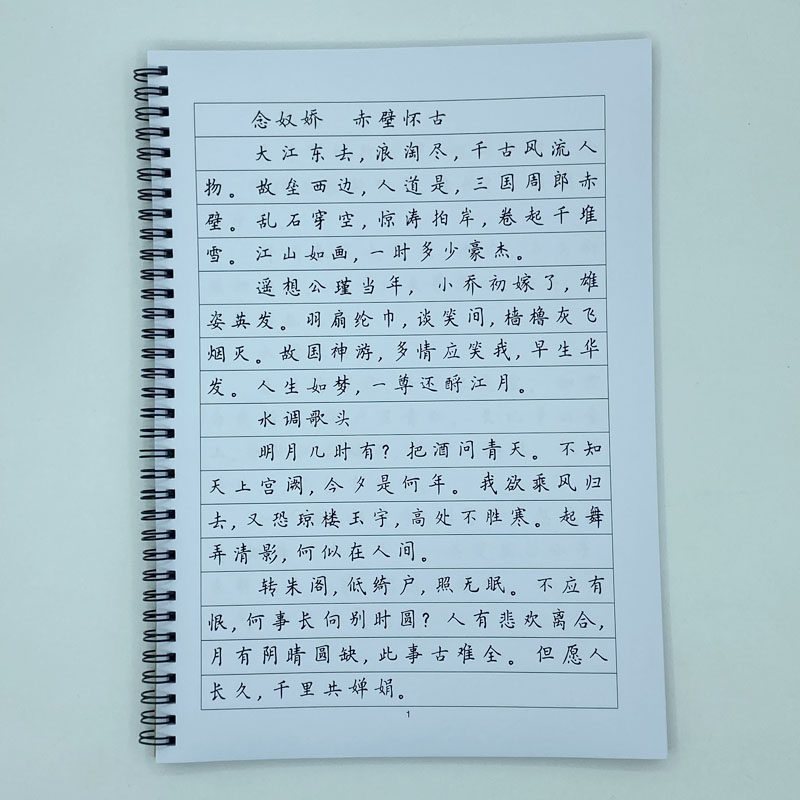 念奴娇　赤壁怀古
大江东去,浪淘尽,千古风流人
物。故垒西边,人道是,三国周郎赤
壁。乱石穿空,惊涛拍岸,卷起千堆
雪。江山如画,一时多少豪杰。
遥想公瑾当年,小乔初嫁了,雄
姿英发。羽扇纶巾,谈笑间,樯橹灰飞
烟灭。故国神游,多情应笑我,早生华
发。人生如梦,一尊还酹江月。
水调歌头
明月几时有?把酒问青天。不知
天上宫阙,今夕是何年。我欲乘风归
去,又恐琼楼玉宇,高处不胜寒。起舞
弄清影,何似在人间。
转朱阁,低绮户,照无眠。不应有
恨,何事长向别时圆?人有悲欢离合,
月有阴晴圆缺,此事古难全。但愿人
长久,千里共婵娟。
1